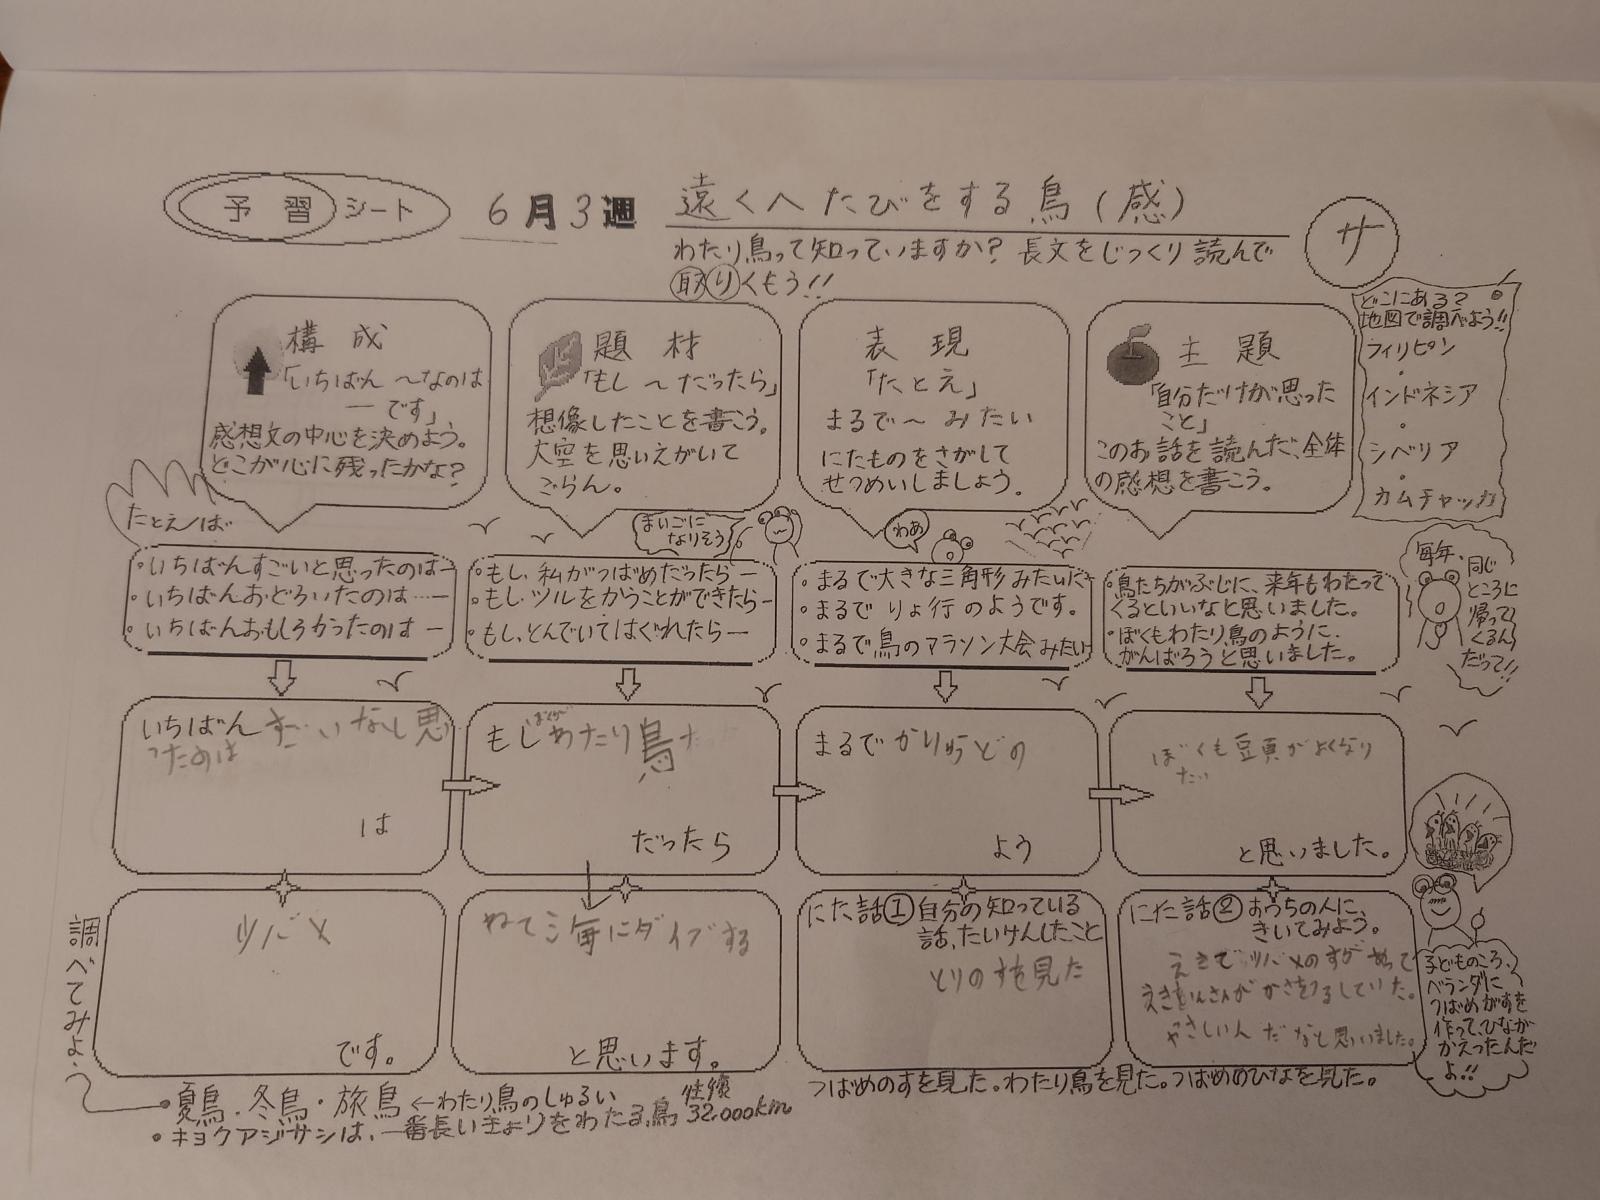 予習シート
6月3週
遠くへたびをする鳥(感)
サ
わたり鳥って知っていますか? 長文をじっくり読んで
取りくもう!!
構成
「いちばん 〜なのは
ーです」
感想文の中心を決めよう。
どこが心に残ったかな?
題材
「もし 〜だったら」
想像したことを書こう。
大空を思いえがいて
ごらん。
表現
「たとえ」
まるで〜みたい
にたものをさがして
せつめいしましょう。
主題
「自分だけが思った
こと」
このお話を読んだ、全体
の感想を書こう。
どこにある?
地図で調べよう!!
フィリピン
・
インドネシア
・
シベリア
・
カムチャッカ
たとえば
まいごに
なりそう
わあ
毎年、同じ
ところに
帰って
くるん
だって!!
・いちばんすごいと思ったのはー
・いちばんおどろいたのは…ー
・いちばんおもしろかったのはー
・もし、私がつばめだったらー
・もし、ツルをかうことができたらー
・もし、とんでいてはぐれたらー
・まるで大きな三角形みたいに
・まるでりょ行のようです。
・まるで鳥のマラソン大会みたい
・鳥たちがぶじに、来年もわたって
くるといいなと思いました。
・ぼくもわたり鳥のように、
がんばろうと思いました。
いちばんすごいなと思
ったのは
は
もしぼくがわたり鳥だった
だったら
まるでかりゅうどの
よう
ぼくも豆頁がよくなり
たい
と思いました。
ツバメ
です。
ねて海にダイブする
と思います。
にた話① 自分の知っている
話、たいけんしたこと
とりのすを見た
にた話② おうちの人に、
きいてみよう。
えきでツバメのすがあって
えきいんさんがかさをつるしていた。
やさしい人だなと思いました。
子どものころ、
ベランダに
つばめがすを
作って、ひなが
かえったんだ
よ!!
調べてみよう
・夏鳥・冬鳥・旅鳥 ←わたり鳥のしゅるい
・キョクアジサシは、一番長いきょりをわたる鳥 往復 32,000km
つばめのすを見た。わたり鳥を見た。つばめのひなを見た。